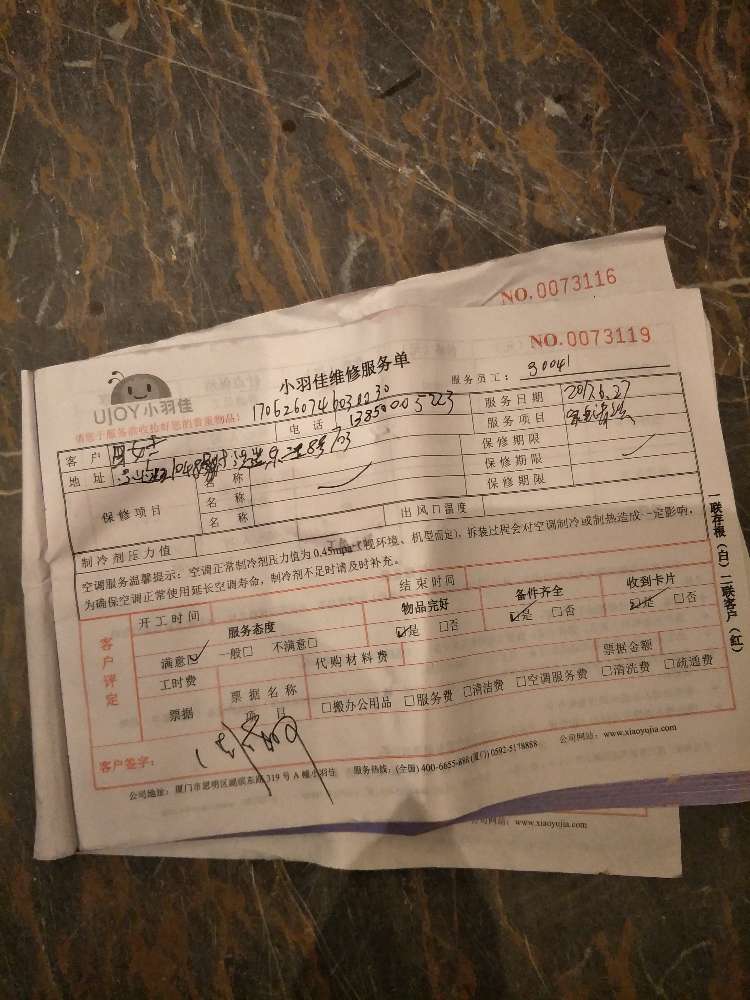 NO.0073116
NO.0073119
UJOY小羽佳
小羽佳维修服务单
服务员工： 30041
请您于服务前收拾好您的贵重物品！
客户
电话
服务日期 2017.6.27
地址
服务项目
保修项目
名称
保修期限
名称
保修期限
名称
保修期限
制冷剂压力值
出风口温度
空调服务温馨提示：空调正常制冷剂压力值为0.45mpa（视环境、机型而定）、拆装过程会对空调制冷或制热造成一定影响，
为确保空调正常使用延长空调寿命，制冷剂不足时请及时补充。
开工时间
结束时间
客户评定
服务态度
物品完好
备件齐全
收到卡片
满意☑ 一般□ 不满意□
☑是 □否
☑是 □否
☑是 □否
工时费
代购材料费
票据金额
票据
票据名称
项目
□搬办公用品 □服务费 □清洁费 □空调服务费 □清洗费 □疏通费
客户签字：
公司地址：厦门市思明区湖滨东路319号A幢小羽佳 服务热线：(全国)400-6655-888(厦门)0592-5178888 公司网站：www.xiaoyujia.com
一联存根（白）二联客户（红）
公司网站：www.xiaoyujia.com